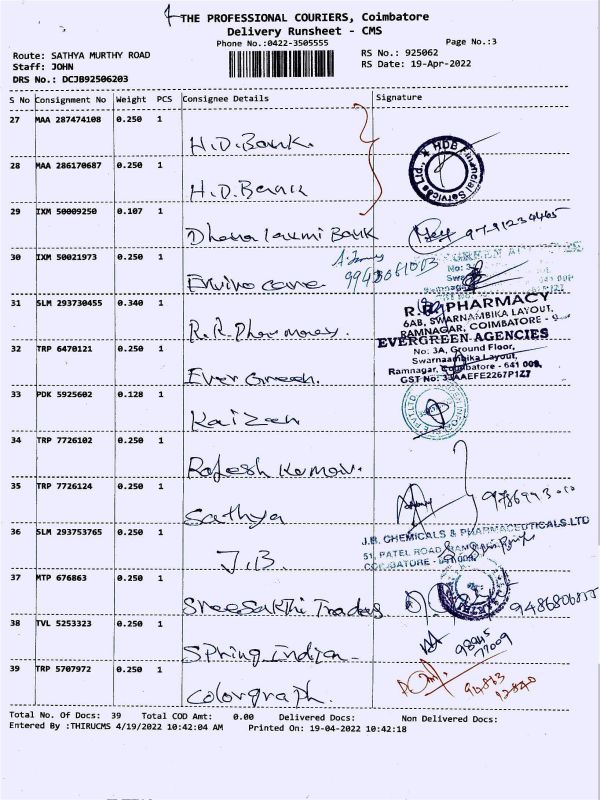 THE PROFESSIONAL COURIERS, Coimbatore
Delivery Runsheet - CMS
Phone No.:0422-3505555
Page No.:3
Route: SATHYA MURTHY ROAD
RS No.: 925062
Staff: JOHN
RS Date: 19-Apr-2022
DRS No.: DCJB92506203
S No Consignment No Weight PCS Consignee Details Signature
27 MAA 287474108 0.250 1
H.D.Bank.
28 MAA 286170687 0.250 1
H.D.Bank
HDB Financial Services Ltd.,
29 IXM 50009250 0.107 1
Dhana laxmi Bank
30 IXM 50021973 0.250 1
Enviro care
31 SLM 293730455 0.340 1
R.R.Pharmacy.
PHARMACY
6AB, SWARNAMBIKA LAYOUT,
RAMNAGAR, COIMBATORE - 9
32 TRP 6470121 0.250 1
Ever Green.
EVERGREEN AGENCIES
No: 3A, Ground Floor,
Swarnaambika Layout,
Ramnagar, Coimbatore - 641 009,
GST No: 33AAEFE2267P1Z7
33 PDK 5925602 0.128 1
Kaizen
34 TRP 7726102 0.250 1
Rajesh Kumar.
35 TRP 7726124 0.250 1
Sathya
36 SLM 293753765 0.250 1
J.B.
J.B. CHEMICALS & PHARMACEUTICALS LTD
51, PATEL ROAD
COIMBATORE - 641 009
37 MTP 676863 0.250 1
Sreesakthi Traders
38 TVL 5253323 0.250 1
Spring Indian
39 TRP 5707972 0.250 1
Colorgraph.
Total No. Of Docs: 39 Total COD Amt: 0.00 Delivered Docs: Non Delivered Docs:
Entered By :THIRUCMS 4/19/2022 10:42:04 AM Printed On: 19-04-2022 10:42:18